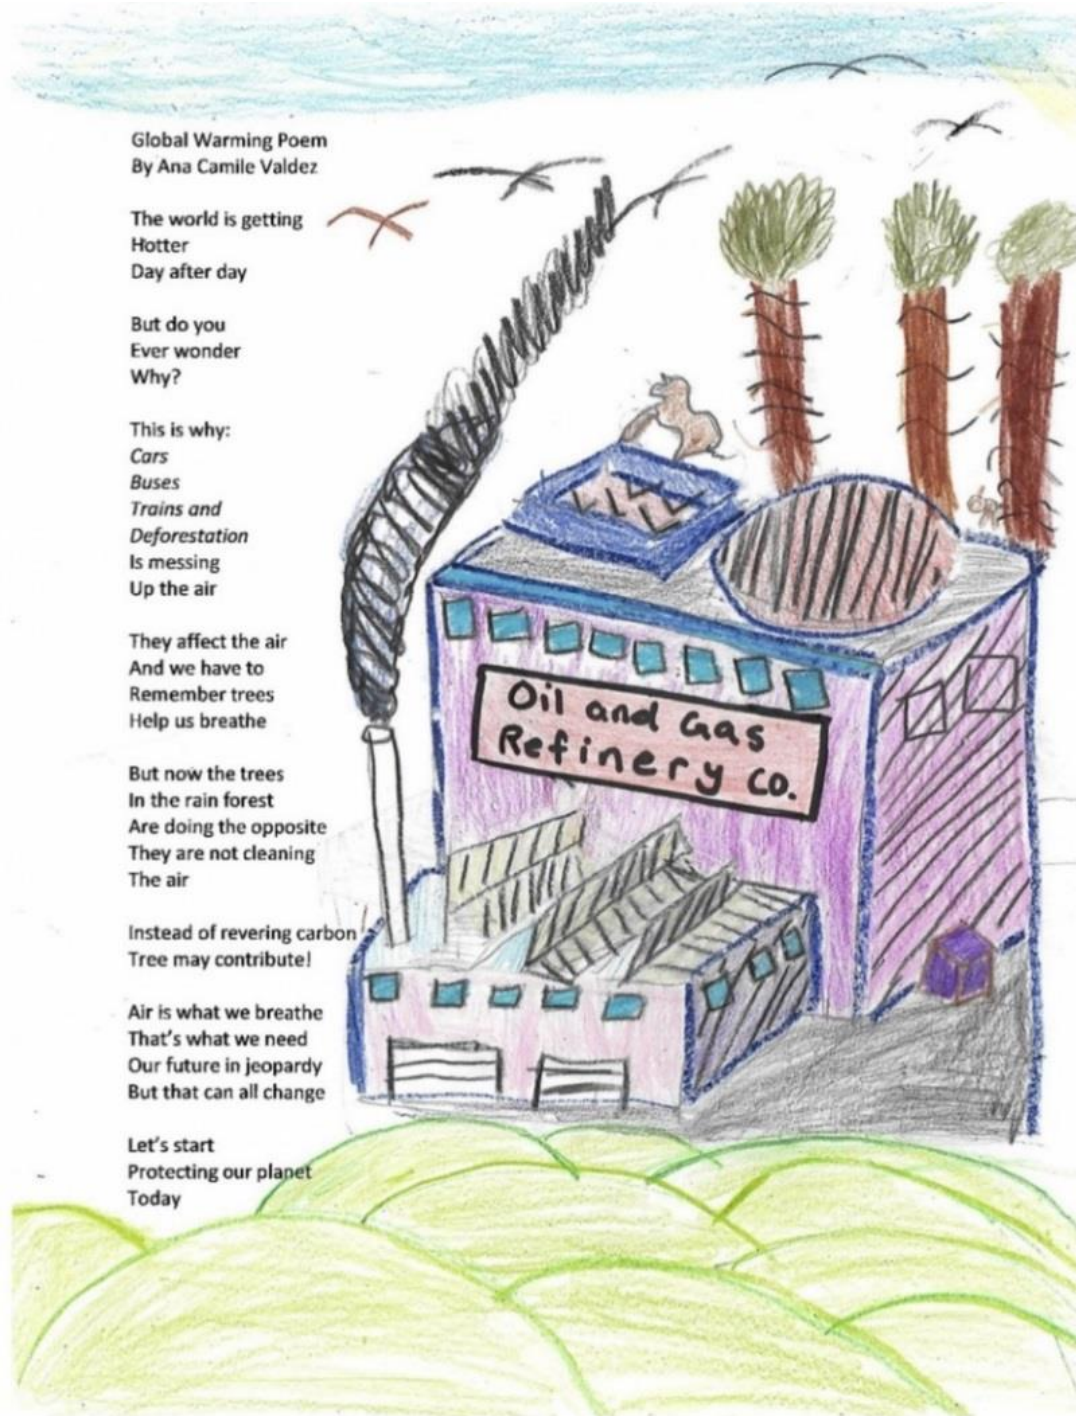 Global Warming Poem
By Ana Camile Valdez
The world is getting
Hotter
Day after day
But do you
Ever wonder
Why?
This is why:
Cars
Buses
Trains and
Deforestation
Is messing
Up the air
They affect the air
And we have to
Remember trees
Help us breathe
But now the trees
In the rain forest
Are doing the opposite
They are not cleaning
The air
Instead of revering carbon
Tree may contribute!
Air is what we breathe
That's what we need
Our future in jeopardy
But that can all change
Let's start
Protecting our planet
Today
Oil and Gas
Refinery co.